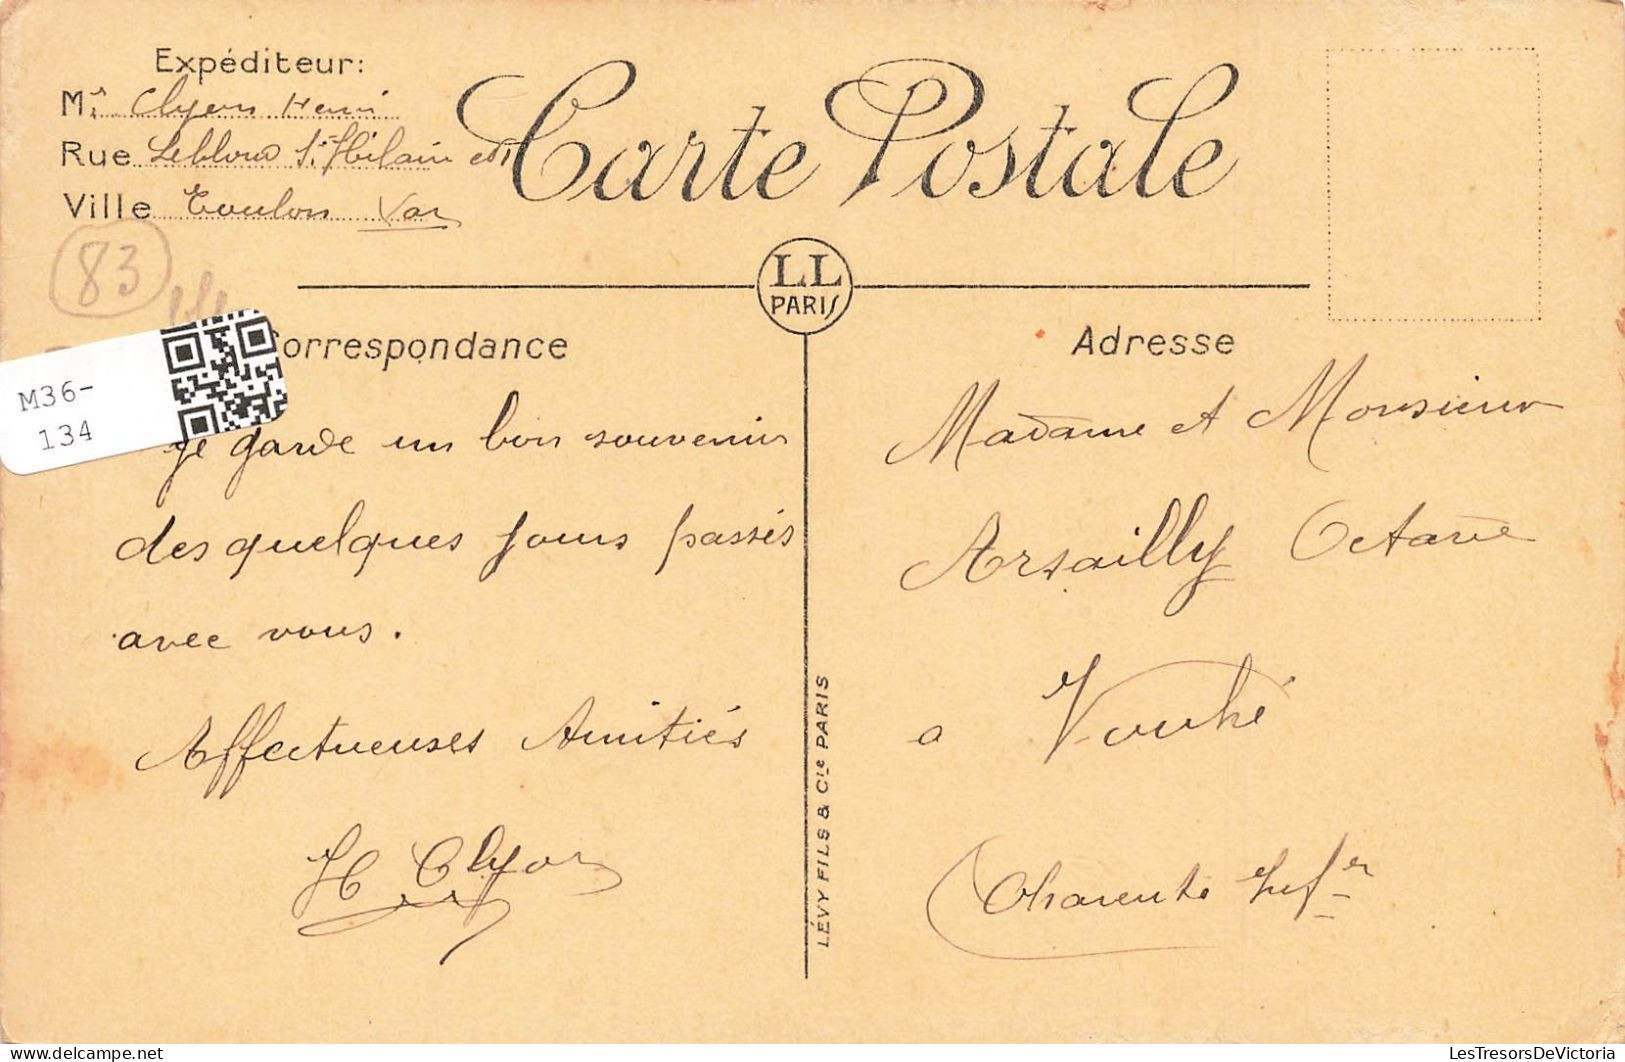 Expéditeur:
Carte Postale
Mr. Henri
Rue Leblond St Hilaire
Ville Toulon Var
83
LL
PARIS
Correspondance
Adresse
M36-
134
Je garde un bon souvenir
des quelques jours passés
avec vous.
Affectueuses Amitiés
H Clyor
Madame et Monsieur
Arsailly Octave
a Vouhé
Charente Infre
LÉVY FILS & Cie PARIS
Delcampe.net
LesTresorsDeVictoria